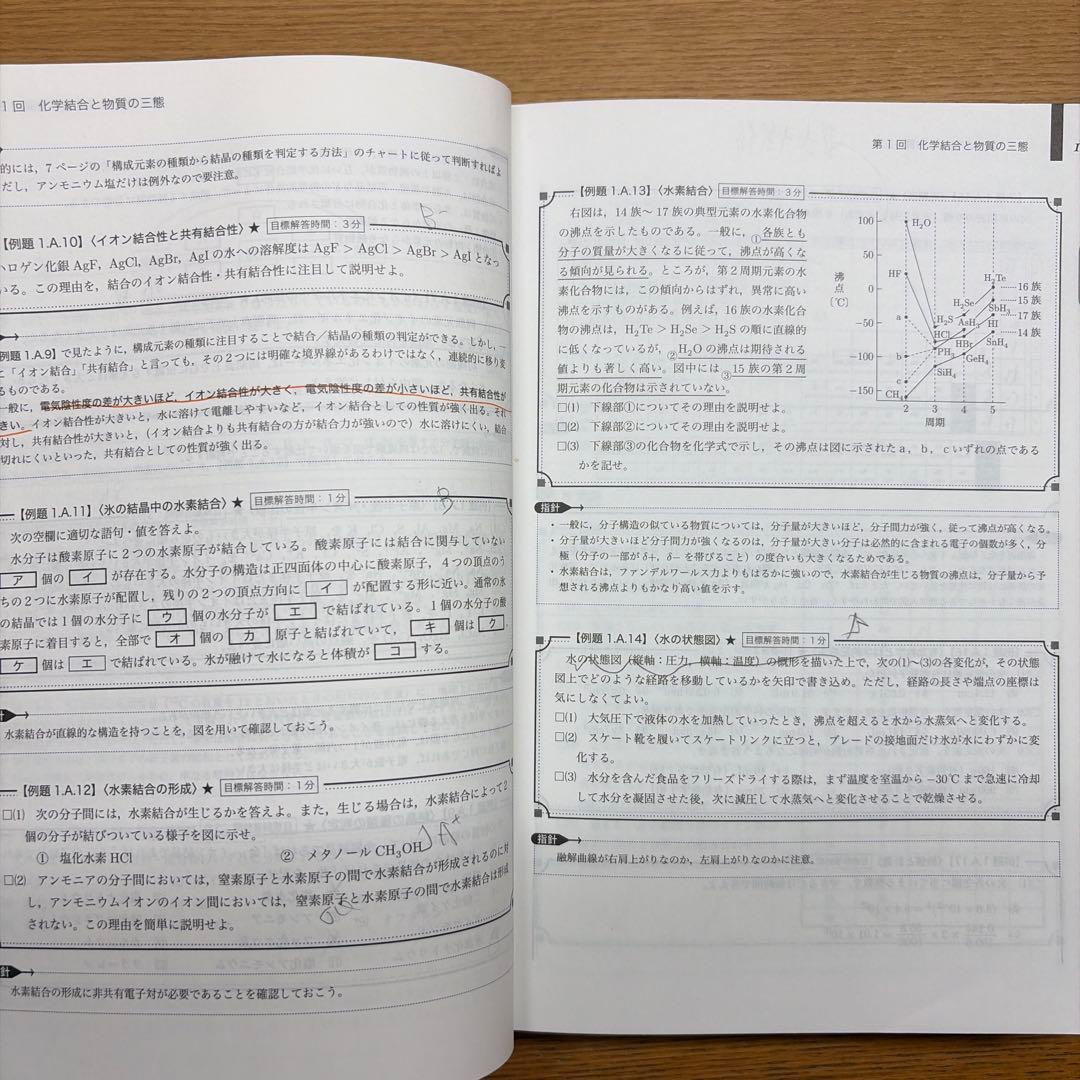 1回 化学結合と物質の三態
的には，7ページの「構成元素の種類から結晶の種類を判定する方法」のチャートに従って判断すればよ
だし，アンモニウム塩だけは例外なので要注意。
B-
【例題 1.A.10】〈イオン結合性と共有結合性〉★ 目標解答時間：3分
ハロゲン化銀 AgF，AgCl，AgBr，AgI の水への溶解度は AgF > AgCl > AgBr > AgI となっ
いる。この理由を，結合のイオン結合性・共有結合性に注目して説明せよ。
例題 1.A.9】で見たように，構成元素の種類に注目することで結合／結晶の種類の判定ができる。しかし，一
に「イオン結合」「共有結合」と言っても，その2つには明確な境界線があるわけではなく，連続的に移り変
るものである。
一般に，電気陰性度の差が大きいほど，イオン結合性が大きく，電気陰性度の差が小さいほど，共有結合性が
きい。イオン結合性が大きいと，水に溶けて電離しやすいなど，イオン結合としての性質が強く出る。それ
対し，共有結合性が大きいと，（イオン結合よりも共有結合の方が結合力が強いので）水に溶けにくい，結合
切れにくいといった，共有結合としての性質が強く出る。
B
【例題 1.A.11】〈氷の結晶中の水素結合〉★ 目標解答時間：1分
次の空欄に適切な語句・値を答えよ。
水分子は酸素原子に2つの水素原子が結合している。酸素原子には結合に関与していない
ア 個の イ が存在する。水分子の構造は正四面体の中心に酸素原子，4つの頂点のう
ちの2つに水素原子が配置し，残りの2つの頂点方向に イ が配置する形に近い。通常の氷
の結晶では1個の水分子に ウ 個の水分子が エ で結ばれている。1個の水分子の酸
素原子に着目すると，全部で オ 個の カ 原子と結ばれていて， キ 個は ク ，
ケ 個は エ で結ばれている。氷が融けて水になると体積が コ する。
針
水素結合が直線的な構造を持つことを，図を用いて確認しておこう。
【例題 1.A.12】〈水素結合の形成〉★ 目標解答時間：1分
□(1) 次の分子間には，水素結合が生じるかを答えよ。また，生じる場合は，水素結合によって2
個の分子が結びついている様子を図に示せ。
① 塩化水素 HCl ② メタノール CH3OH
A+
□(2) アンモニアの分子間においては，窒素原子と水素原子の間で水素結合が形成されるのに対
し，アンモニウムイオンのイオン間においては，窒素原子と水素原子の間で水素結合は形成
されない。この理由を簡単に説明せよ。
針
水素結合の形成に非共有電子対が必要であることを確認しておこう。
第1回 化学結合と物質の三態
【例題 1.A.13】〈水素結合〉 目標解答時間：3分
右図は，14族～17族の典型元素の水素化合物
の沸点を示したものである。一般に，①各族とも
分子の質量が大きくなるに従って，沸点が高くな
る傾向が見られる。ところが，第2周期元素の水
素化合物には，この傾向からはずれ，異常に高い
沸点を示すものがある。例えば，16族の水素化合
物の沸点は，H2Te > H2Se > H2S の順に直線的
に低くなっているが，②H2O の沸点は期待される
値よりも著しく高い。図中には③15族の第2周
期元素の化合物は示されていない。
沸点〔℃〕
100
50
0
−50
−100
−150
H2O
HF
a
b
c
CH4
H2S
HCl
PH3
SiH4
H2Se
AsH3
HBr
GeH4
H2Te
SbH3
HI
SnH4
16族
15族
17族
14族
2 3 4 5
周期
□(1) 下線部①についてその理由を説明せよ。
□(2) 下線部②についてその理由を説明せよ。
□(3) 下線部③の化合物を化学式で示し，その沸点は図に示された a，b，c いずれの点である
かを記せ。
指針
・一般に，分子構造の似ている物質については，分子量が大きいほど，分子間力が強く，従って沸点が高くなる。
・分子量が大きいほど分子間力が強くなるのは，分子量が大きい分子は必然的に含まれる電子の個数が多く，分
極（分子の一部がδ+，δ−を帯びること）の度合いも大きくなるためである。
・水素結合は，ファンデルワールス力よりもはるかに強いので，水素結合が生じる物質の沸点は，分子量から予
想される沸点よりもかなり高い値を示す。
【例題 1.A.14】〈水の状態図〉★ 目標解答時間：1分
水の状態図（縦軸：圧力，横軸：温度）の概形を描いた上で，次の(1)～(3)の各変化が，その状態
図上でどのような経路を移動しているかを矢印で書き込め。ただし，経路の長さや端点の座標は
気にしなくてよい。
□(1) 大気圧下で液体の水を加熱していったとき，沸点を超えると水から水蒸気へと変化する。
□(2) スケート靴を履いてスケートリンクに立つと，ブレードの接地面だけ氷が水にわずかに変
化する。
□(3) 水分を含んだ食品をフリーズドライする際は，まず温度を室温から−30℃まで急速に冷却
して水分を凝固させた後，次に減圧して水蒸気へと変化させることで乾燥させる。
指針
融解曲線が右肩上がりなのか，左肩上がりなのかに注意。